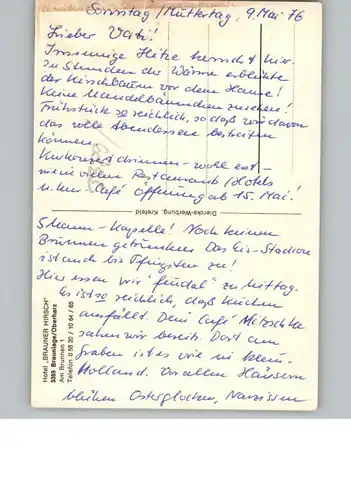 Sonntag / Muttertag, 9. Mai 76
Lieber Vati!
Irrsinnige Hitze herrscht hier.
In Stunden der Wärme erblühte
der Kirschbaum vor dem Hause!
Keine Mandelbäumchen zu sehen!
Frühstück so reichlich, so daß wir davon
das volle Abendessen bestreiten
können
Kurkonzert drinnen - wohl erst -
wie in vielen Restaurants / Hotels
u. Kur-Café Öffnung ab 15. Mai!
Diercks-Werbung, Krefeld
Mann-Kapelle! Noch keinen
Brunnen getrunken. Das Eis-Stadion
ist auch bis Pfingsten zu!
Hier essen wir "feudal" zu Mittag.
Es ist so reichlich, daß Kuchen
ausfällt. Dein Café Mitzschke
sahen wir bereits. Dort am
Graben ist es wie in Klein-
Holland. Vor allen Häusern
blühen Osterglocken, Narzissen
Hotel „BRAUNER HIRSCH"
3389 Braunlage/Oberharz
Am Brunnen 1
Telefon 0 55 20 / 10 64 / 65